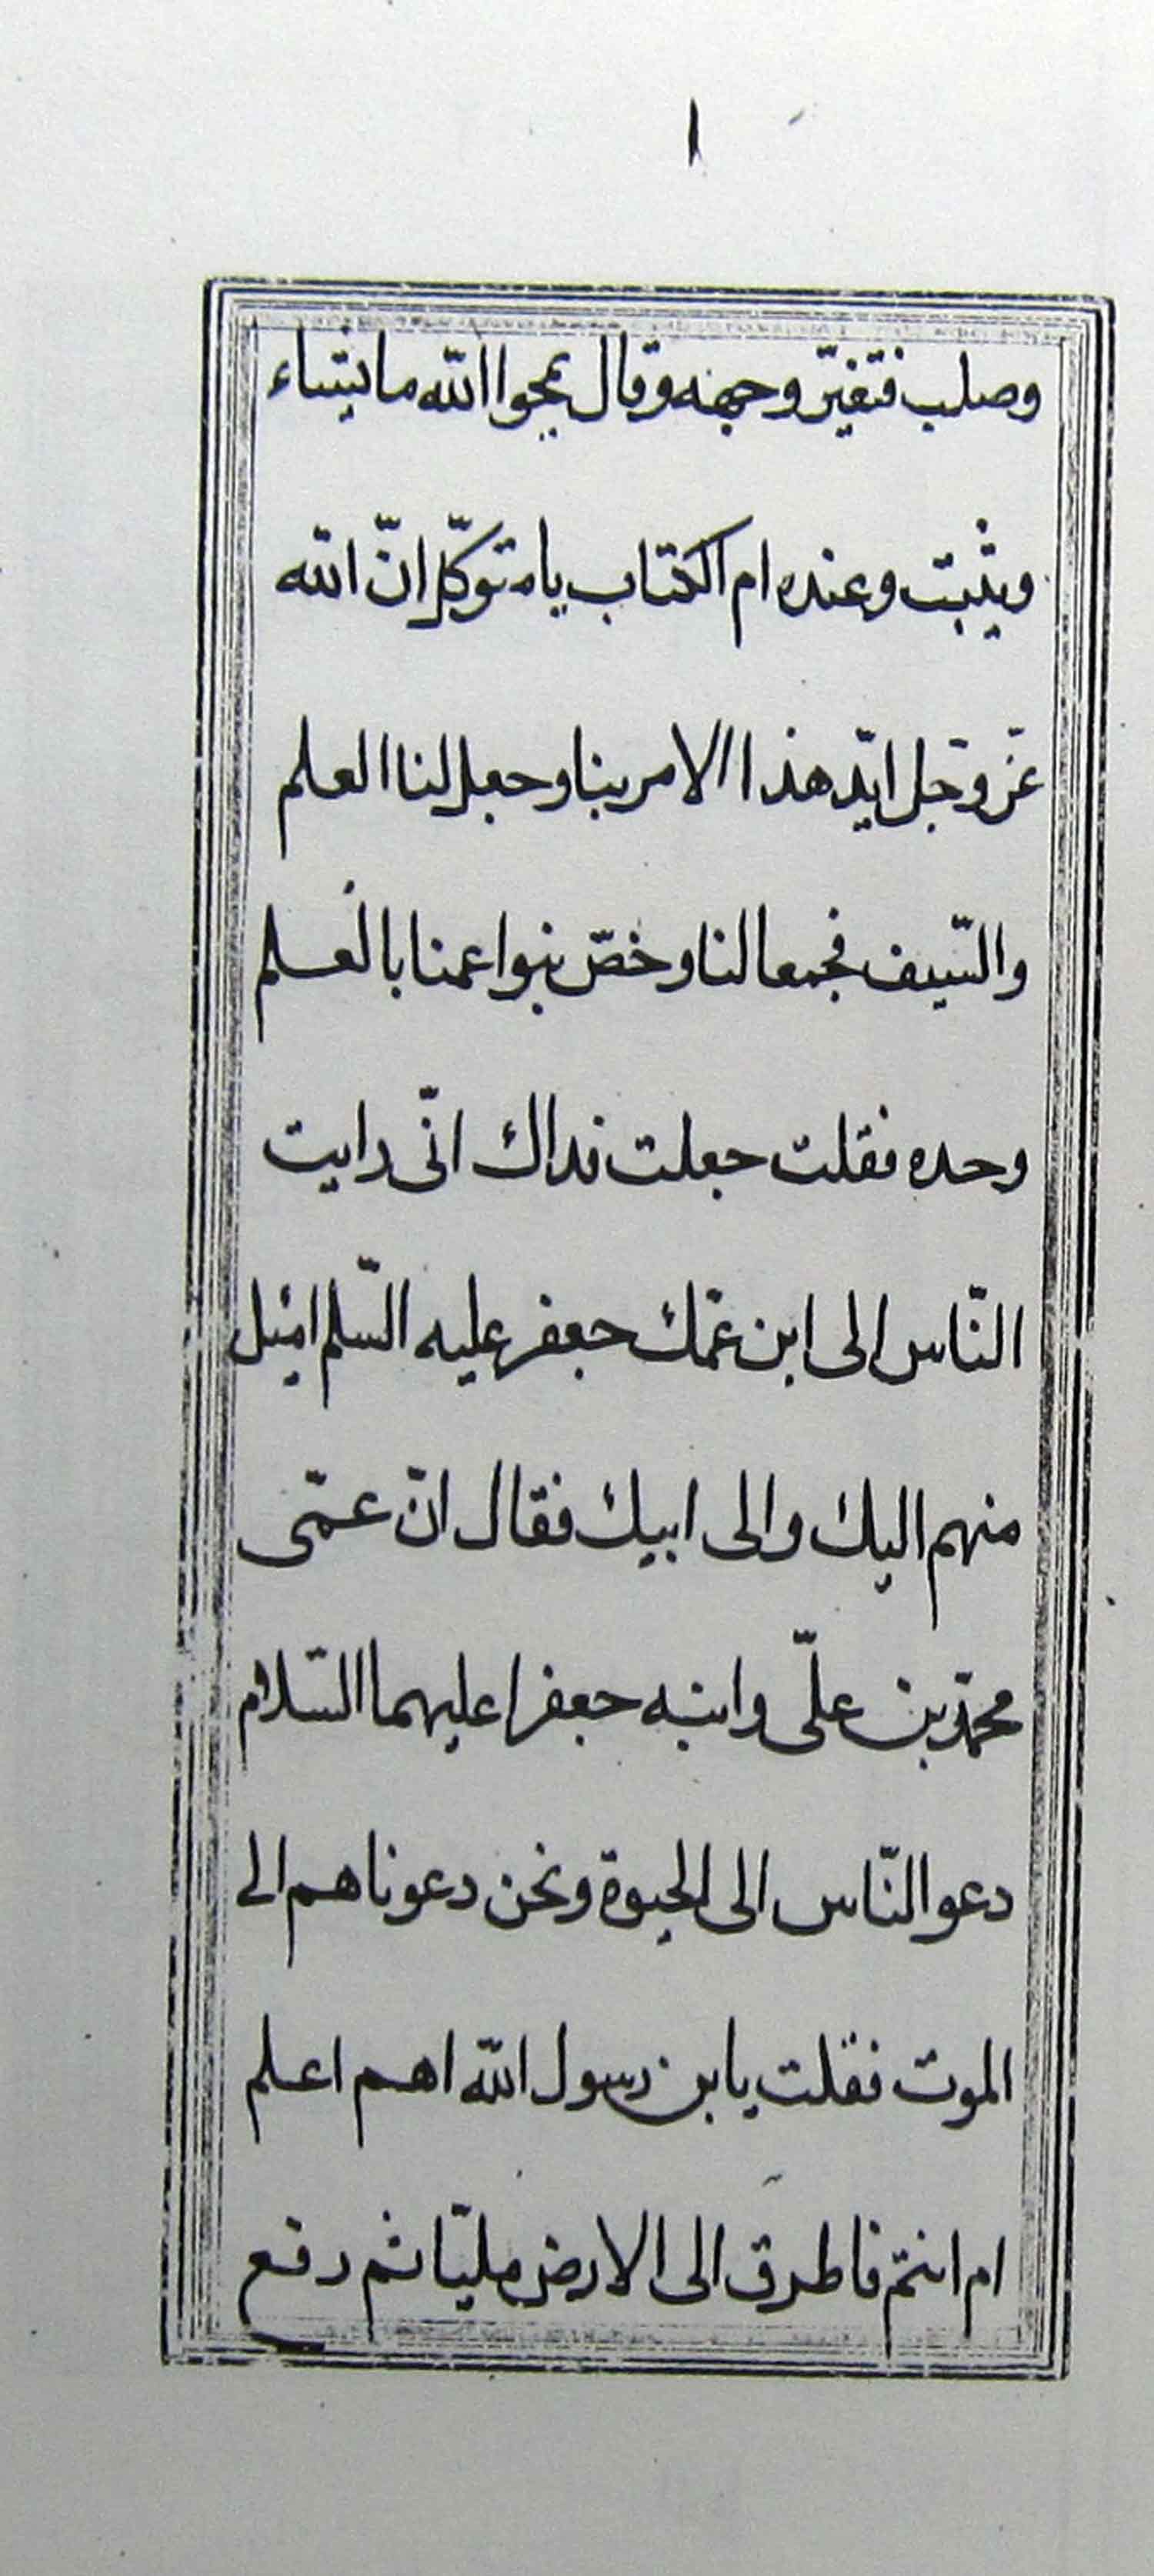 ١
وصلب فتغيّر وجهه وقال يمحوا الله ما يشاء
ويثبت وعنده ام الكتاب يا متوكّل انّ الله
عزّ وجل ايّد هذا الامر بنا وجعل لنا العلم
والسّيف فجمعا لنا وخصّ بنوا عمنا بالعلم
وحده فقلت جعلت فداك انّى رايت
النّاس الى ابن عمّك جعفر عليه السّلم اميل
منهم اليك والى ابيك فقال انّ عمّى
محمّد بن علىّ وابنه جعفرا عليهما السّلام
دعو النّاس الى الحيوة ونحن دعوناهم الى
الموت فقلت يابن رسول الله اهم اعلم
ام انتم فاطرق الى الارض مليّا ثم رفع